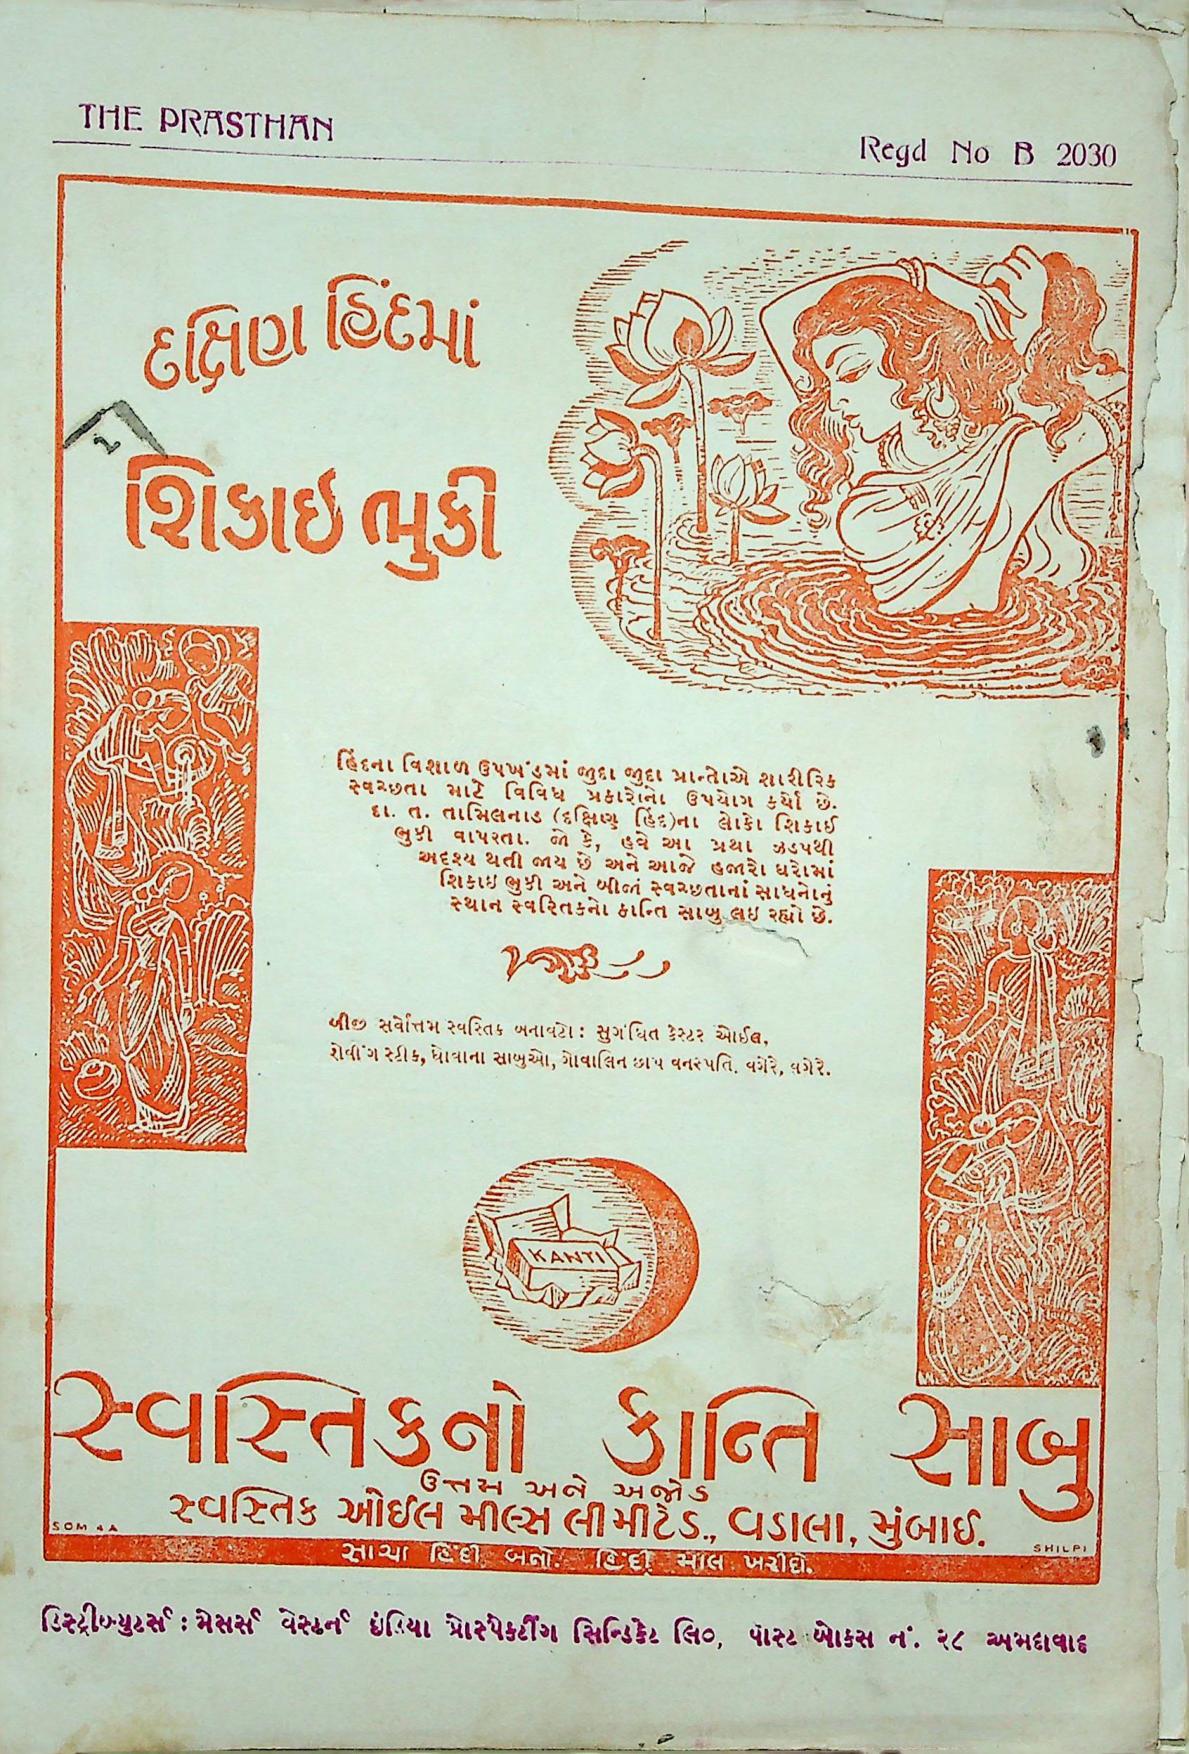 THE PRASTHAN
Regd No B 2030
દક્ષિણ હિંદમાં
શિકાઇ ભુકી
હિંદના વિશાળ ઉપખંડમાં જુદા જુદા પ્રાન્તોએ શારીરિક
સ્વચ્છતા માટે વિવિધ પ્રકારોનો ઉપયોગ કર્યો છે.
દા. ત. તામિલનાડ (દક્ષિણ હિંદ)ના લોકો શિકાઈ
ભુકી વાપરતા. જો કે, હવે આ પ્રથા ઝડપથી
અદશ્ય થતી જાય છે અને આજે હજારો ઘરોમાં
શિકાઇ ભુકી અને બીજાં સ્વચ્છતાનાં સાધનોનું
સ્થાન સ્વસ્તિકનો કાન્તિ સાબુ લઇ રહ્યો છે.
બીજી સર્વોત્તમ સ્વસ્તિક બનાવટો : સુગંધિત કેસ્ટર ઓઈલ,
શેવીંગ સ્ટીક, ધોવાના સાબુઓ, ગોવાલિન છાપ વનસ્પતિ. વગેરે, વગેરે.
KANTI
સ્વસ્તિકનો કાન્તિ સાબુ
ઉત્તમ અને અજોડ
સ્વસ્તિક ઓઈલ મીલ્સ લીમીટેડ., વડાલા, મુંબાઈ.
SOM 4A
SHILPI
સાચા હિંદી બનો. હિંદી માલ ખરીદો.
ડિસ્ટ્રીબ્યુટર્સ : મેસર્સ વેસ્ટર્ન ઇંડિયા પ્રોસ્પેક્ટીંગ સિન્ડિકેટ લિ૦, પોસ્ટ બોકસ નં. ૨૮ અમદાવાદ